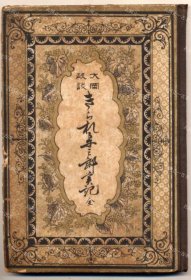 大岡
政談
きられ与三郎実記 全